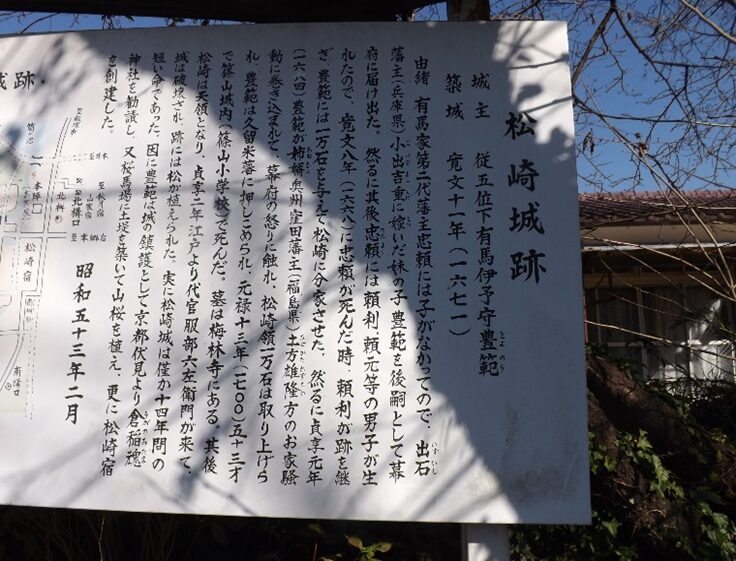 松崎城跡
城主 従五位下有馬伊予守豊範
とよのり
築城 寛文十一年(一六七一)
由緒 有馬家第二代藩主忠頼には子がなかってので、出石
いずいし
藩主(兵庫県)小出吉重に嫁いだ妹の子豊範を後嗣として幕
府に届け出た。然るに其後忠頼には頼利、頼元等の男子が生
れたので、寛文八年(一六六八)に忠頼が死んだ時、頼利が跡を継
ぎ、豊範には一万石を与えて松崎に分家させた。然るに貞享元年
(一六八四)豊範が姉婿奥州窪田藩主(福島県)土方雄隆方のお家騒
動に巻き込まれて、幕府の怒りに触れ、松崎領一万石は取り上げら
れ、豊範は久留米藩に押しこめられ、元禄十三年(一七〇〇)五十三才
で篠山城内(篠山小学校)で死んだ。墓は梅林寺にある。其後
松崎は天領となり、貞享二年江戸より代官服部六左衛門が来て、
城は破壊され、跡には松が植えられた。実に松崎城は僅か十四年間の
短い命であった。因に豊範は城の鎮護として京都伏見より倉稲魂
うがのみたま
神社を勧請し、又桜馬場に土堤を築いて山桜を植え、更に松崎宿
を創建した。
昭和五十三年二月
城跡
本陣
北構口
松崎宿
南構口